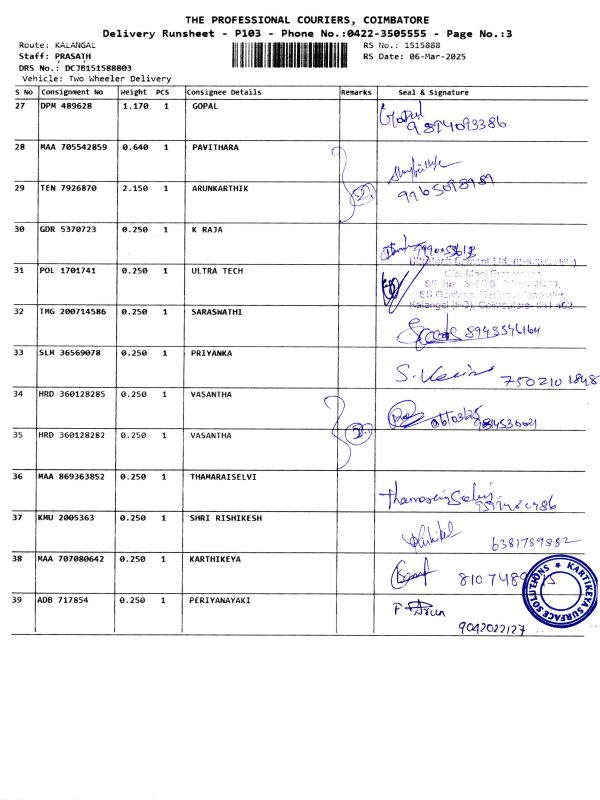 THE PROFESSIONAL COURIERS, COIMBATORE
Delivery Runsheet - P103 - Phone No.:0422-3505555 - Page No.:3
Route: KALANGAL
RS No.: 1515888
Staff: PRASATH
RS Date: 06-Mar-2025
DRS No.: DCJB151588803
Vehicle: Two Wheeler Delivery
S No Consignment No Weight PCS Consignee Details Remarks Seal & Signature
27 DPM 489628 1.170 1 GOPAL
Gopal
9894093386
28 MAA 705542859 0.640 1 PAVITHARA
29 TEN 7926870 2.150 1 ARUNKARTHIK
2
9965098989
30 GDR 5370723 0.250 1 K RAJA
31 POL 1701741 0.250 1 ULTRA TECH
32 TMG 200714586 0.250 1 SARASWATHI
8943546164
33 SLM 36569078 0.250 1 PRIYANKA
7502101848
34 HRD 360128285 0.250 1 VASANTHA
35 HRD 360128282 0.250 1 VASANTHA
2
36 MAA 869363852 0.250 1 THAMARAISELVI
Thamarai Selvi
37 KMU 2005363 0.250 1 SHRI RISHIKESH
Rishikesh
6381789882
38 MAA 707080642 0.250 1 KARTHIKEYA
KARTIKEYA SURFACE SOLUTIONS
39 ADB 717854 0.250 1 PERIYANAYAKI
P. Arun
9042022127